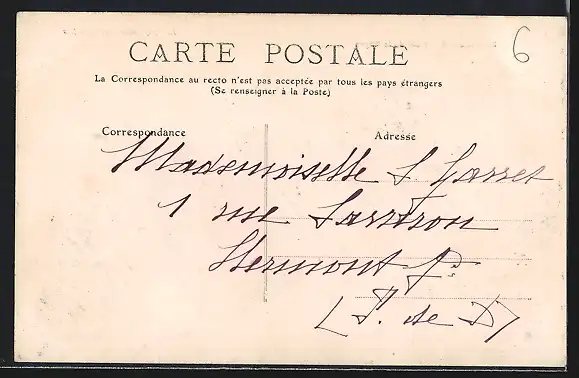 6
CARTE POSTALE
La Correspondance au recto n'est pas acceptée par tous les pays étrangers
(Se renseigner à la Poste)
Correspondance
Adresse
Mademoiselle S. Gasset
1 rue
Clermont Fd
(P. de D)